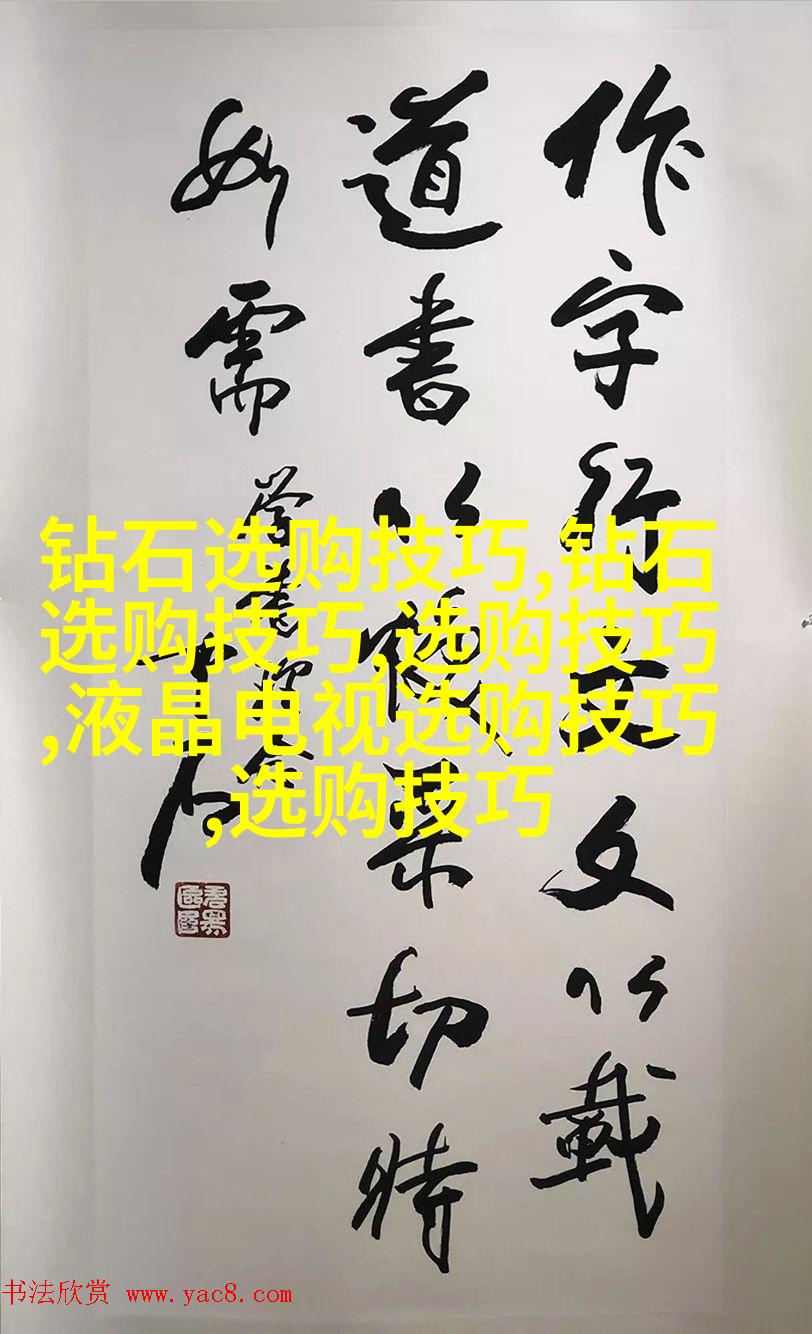 作字行文以載
道書以 采切時
如需
钻石选购技巧,钻石
选购技巧,选购技巧
,液晶电视选购技巧
,选购技巧
书法欣赏 www.yac8.com